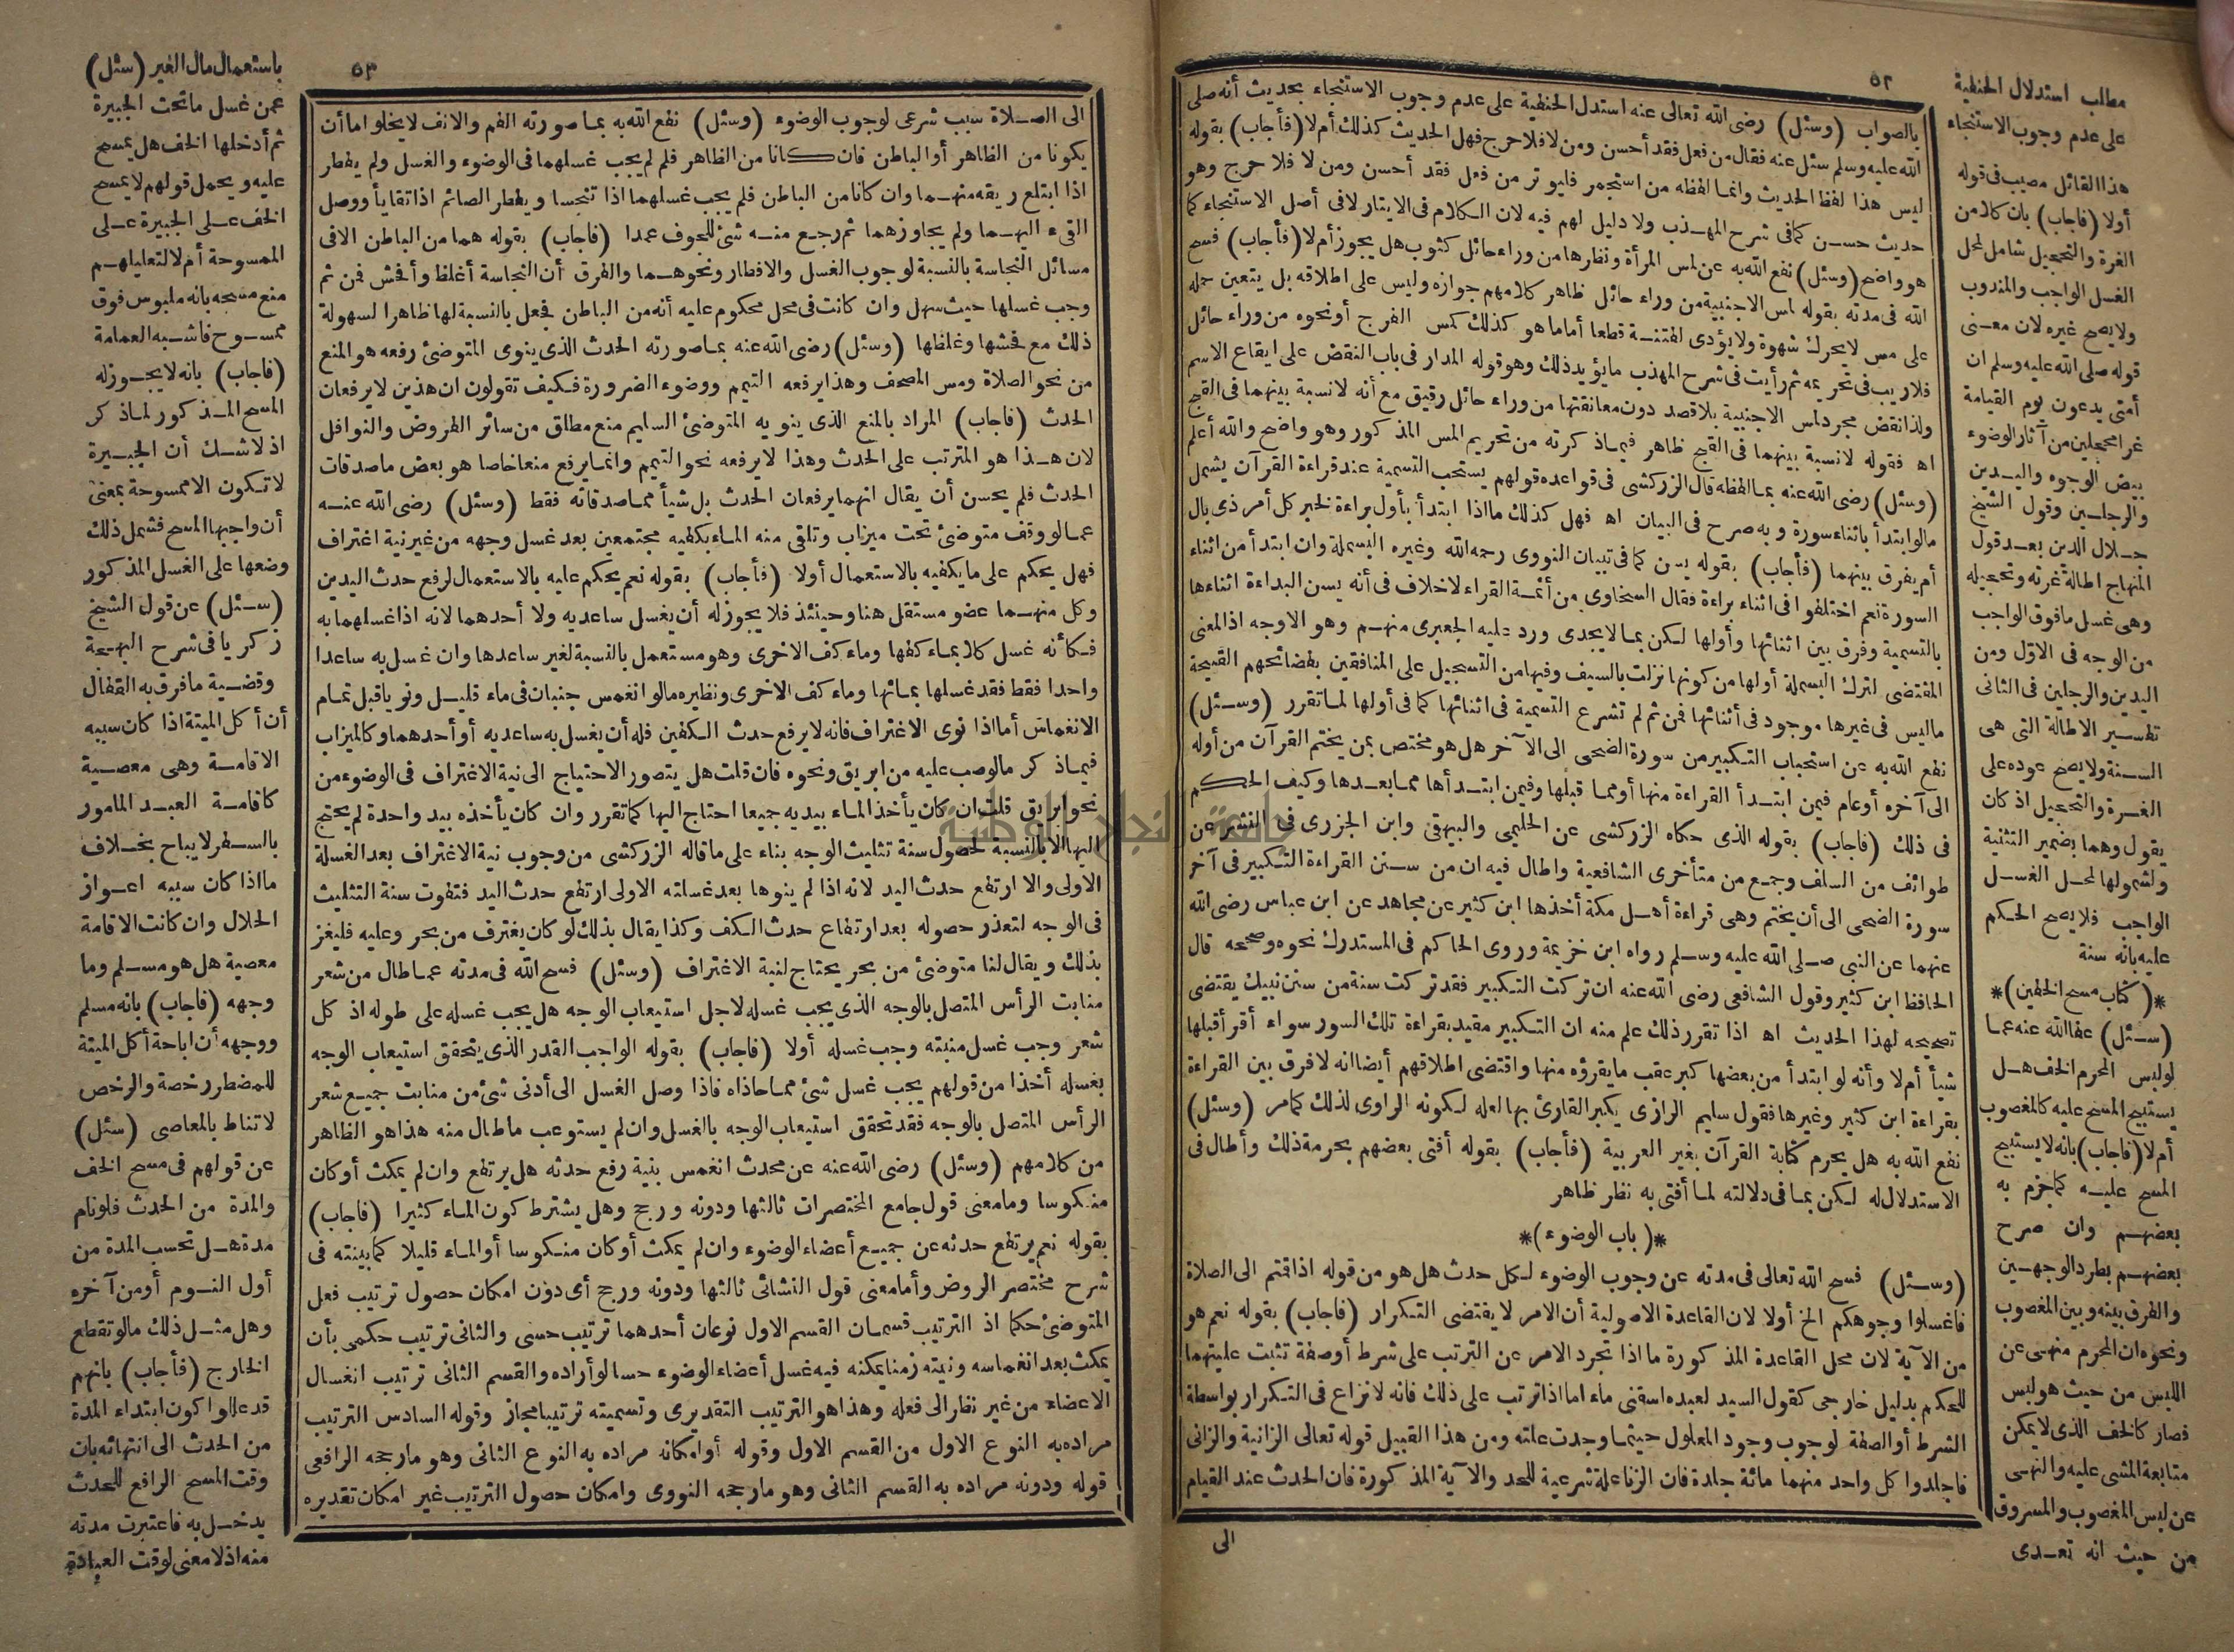 ٥٢
مطالب استدلال الحنفية
على عدم وجوب الاستنجاء
هذا القائل مصيب فى قوله
أولا (فاجاب) بان كلا من
الغرة والتحجيل شامل لمحل
الغسل الواجب والمندوب
ولا يصح غيره لان معنى
قوله صلى الله عليه وسلم ان
أمتى يدعون يوم القيامة
غرا محجلين من آثار الوضوء
بيض الوجوه واليدين
والرجلين وقول الشيخ
جلال الدين بعد قول
المنهاج اطالة غرته وتحجيله
وهى غسل مافوق الواجب
من الوجه فى الاول ومن
اليدين والرجلين فى الثانى
تفسير الاطالة التى هى
السنة ولا يصح عوده على
الغرة والتحجيل اذ كان
يقول وهما بضمير التثنية
ولشمولها لمحل الغسل
الواجب فلا يصح الحكم
عليه بانه سنة
*(كتاب مسح الخفين)*
(سئل) عفا الله عنه عما
لو لبس المحرم الخف هل
يستبيح المسح عليه كالمغصوب
أم لا (فاجاب) بانه لا يستبيح
المسح عليه كما جزم به
بعضهم وان صرح
بعضهم بطرد الوجهين
والفرق بينه وبين المغصوب
ونحوه ان المحرم منهى عن
اللبس من حيث هو لبس
فصار كالخف الذى لا يمكن
متابعة المشى عليه والنهى
عن لبس المغصوب والمسروق
من حيث انه تعدى
بالصواب (وسئل) رضى الله تعالى عنه استدل الحنفية على عدم وجوب الاستنجاء بحديث أنه صلى
الله عليه وسلم سئل عنه فقال من فعل فقد أحسن ومن لا فلا حرج فهل الحديث كذلك أم لا (فأجاب) بقوله
ليس هذا لفظ الحديث وانما لفظه من استجمر فليوتر من فعل فقد أحسن ومن لا فلا حرج وهو
حديث حسن كما فى شرح المهذب ولا دليل لهم فيه لان الكلام فى الايتار لا فى أصل الاستنجاء كما
هو واضح (وسئل) نفع الله به عن لمس المرأة ونظرها من وراء حائل كثوب هل يجوز أم لا (فأجاب) فسح
الله فى مدته بقوله لمس الاجنبية من وراء حائل ظاهر كلامهم جوازه وليس على اطلاقه بل يتعين حمله
على مس لا يحرك شهوة ولا يؤدى لفتنة قطعا أما ما هو كذلك كمس الفرج أو نحوه من وراء حائل
فلا ريب فى تحريمه ثم رأيت فى شرح المهذب ما يؤيد ذلك وهو قوله المدار فى باب النقض على ايقاع الاسم
ولذا نقض مجرد لمس الاجنبية بلا قصد دون معانقتها من وراء حائل رقيق مع أنه لا نسبة بينهما فى القبح
اه فقوله لا نسبة بينهما فى القبح ظاهر فيما ذكرته من تحريم المس المذكور وهو واضح والله أعلم
(وسئل) رضى الله عنه بما لفظه قال الزركشى فى قواعده قولهم يستحب التسمية عند قراءة القرآن يشمل
ما لو ابتدأ باثناء سورة وبه صرح فى البيان اه فهل كذلك ما اذا ابتدأ بأول براءة لخبر كل أمر ذى بال
أم يفرق بينهما (فأجاب) بقوله يسن كما فى تبيان النووى رحمه الله وغيره البسملة وان ابتدأ من اثناء
السورة نعم اختلفوا فى اثناء براءة فقال السخاوى من أئمة القراء لا خلاف فى أنه يسن البداءة اثناءها
بالتسمية وفرق بين اثنائها وأولها لكن بما لا يجدى ورد عليه الجعبرى منهم وهو الاوجه اذ المعنى
المقتضى لترك البسملة أولها من كونها نزلت بالسيف وفيها من التسجيل على المنافقين بفضائحهم القبيحة
ما ليس فى غيرها موجود فى أثنائها فمن ثم لم تشرع التسمية فى اثنائها كما فى أولها لما تقرر (وسئل)
نفع الله به عن استحباب التكبير من سورة الضحى الى الآخر هل هو مختص بمن يختم القرآن من أوله
الى آخره أو عام فيمن ابتدأ القراءة منها أو مما قبلها وفيمن ابتدأها مما بعدها وكيف الحكم
فى ذلك (فاجاب) بقوله الذى حكاه الزركشى عن الحليمى والبيهقى وابن الجزرى فى النشر عن
طوائف من السلف وجمع من متأخرى الشافعية واطال فيه ان من سنن القراءة التكبير فى آخر
سورة الضحى الى أن يختم وهى قراءة أهل مكة أخذها ابن كثير عن مجاهد عن ابن عباس رضى الله
عنهما عن النبى صلى الله عليه وسلم رواه ابن خزيمة وروى الحاكم فى المستدرك نحوه وصححه قال
الحافظ ابن كثير وقول الشافعى رضى الله عنه ان تركت التكبير فقد تركت سنة من سنن نبيك يقتضى
تصحيحه لهذا الحديث اه اذا تقرر ذلك علم منه ان التكبير مقيد بقراءة تلك السور سواء أقرأ قبلها
شيأ أم لا وأنه لو ابتدأ من بعضها كبر عقب ما يقرؤه منها واقتضى اطلاقهم أيضا انه لا فرق بين القراءة
بقراءة ابن كثير وغيرها فقول سليم الرازى يكبر القارئ بها لعله لكونه الراوى لذلك كما مر (وسئل)
نفع الله به هل يحرم كتابة القرآن بغير العربية (فأجاب) بقوله أفتى بعضهم بحرمة ذلك وأطال فى
الاستدلال له لكن بما فى دلالته لما أفتى به نظر ظاهر
*(باب الوضوء)*
(وسئل) فسح الله تعالى فى مدته عن وجوب الوضوء لكل حدث هل هو من قوله اذا قمتم الى الصلاة
فاغسلوا وجوهكم الخ أولا لان القاعدة الاصولية أن الامر لا يقتضى التكرار (فاجاب) بقوله نعم هو
من الآية لان محل القاعدة المذكورة ما اذا تجرد الامر عن الترتب على شرط أو صفة تثبت عليتهما
للحكم بدليل خارجى كقول السيد لعبده اسقنى ماء اما اذا ترتب على ذلك فانه لا نزاع فى التكرار بواسطة
الشرط أو الصفة لوجوب وجود المعلول حيثما وجدت علته ومن هذا القبيل قوله تعالى الزانية والزانى
فاجلدوا كل واحد منهما مائة جلدة فان الزنا علة شرعية للحد والآية المذكورة فان الحدث عند القيام
الى
٥٣
الى الصلاة سبب شرعى لوجوب الوضوء (وسئل) نفع الله به بما صورته الفم والانف لا يخلو اما أن
يكونا من الظاهر أو الباطن فان كانا من الظاهر فلم لم يجب غسلهما فى الوضوء والغسل ولم يفطر
اذا ابتلع ريقه منهما وان كانا من الباطن فلم يجب غسلهما اذا تنجسا ويفطر الصائم اذا تقايأ ووصل
القىء اليهما ولم يجاوزهما ثم رجع منه شئ للجوف عمدا (فاجاب) بقوله هما من الباطن الا فى
مسائل النجاسة بالنسبة لوجوب الغسل والافطار ونحوهما والفرق أن النجاسة أغلظ وأفحش فمن ثم
وجب غسلها حيث سهل وان كانت فى محل محكوم عليه أنه من الباطن فجعل بالنسبة لها ظاهرا لسهولة
ذلك مع فحشها وغلظها (وسئل) رضى الله عنه بما صورته الحدث الذى ينوى المتوضئ رفعه هو المنع
من نحو الصلاة ومس المصحف وهذا يرفعه التيمم ووضوء الضرورة فكيف تقولون ان هذين لا يرفعان
الحدث (فاجاب) المراد بالمنع الذى ينويه المتوضئ السليم منع مطلق من سائر الفروض والنوافل
لان هذا هو المترتب على الحدث وهذا لا يرفعه نحو التيمم وانما يرفع منعا خاصا هو بعض ما صدقات
الحدث فلم يحسن أن يقال انهما يرفعان الحدث بل شيأ مما صدقاته فقط (وسئل) رضى الله عنه
عما لو وقف متوضئ تحت ميزاب وتلقى منه الماء بكفيه مجتمعين بعد غسل وجهه من غير نية اغتراف
فهل يحكم على ما بكفيه بالاستعمال أولا (فأجاب) بقوله نعم يحكم عليه بالاستعمال لرفع حدث اليدين
وكل منهما عضو مستقل هنا وحينئذ فلا يجوز له أن يغسل ساعديه ولا أحدهما لانه اذا غسلهما به
فكأنه غسل كلا بماء كفها وماء كف الاخرى وهو مستعمل بالنسبة لغير ساعدها وان غسل به ساعدا
واحدا فقط فقد غسلها بمائها وماء كف الاخرى ونظيره ما لو انغمس جنبان فى ماء قليل ونويا قبل تمام
الانغماس أما اذا نوى الاغتراف فانه لا يرفع حدث الكفين فله أن يغسل به ساعديه أو أحدهما وكالميزاب
فيما ذكر ما لو صب عليه من ابريق ونحوه فان قلت هل يتصور الاحتياج الى نية الاغتراف فى الوضوء من
نحو ابريق قلت ان كان يأخذ الماء بيديه جميعا احتاج اليها كما تقرر وان كان يأخذه بيد واحدة لم يحتج
اليها الا بالنسبة لحصول سنة تثليث الوجه بناء على ما قاله الزركشى من وجوب نية الاغتراف بعد الغسلة
الاولى والا ارتفع حدث اليد لانه اذا لم ينوها بعد غسلته الاولى ارتفع حدث اليد فتفوت سنة التثليث
فى الوجه لتعذر حصوله بعد ارتفاع حدث الكف وكذا يقال بذلك لو كان يغترف من بحر وعليه فليغز
بذلك ويقال لنا متوضئ من بحر يحتاج لنية الاغتراف (وسئل) فسح الله فى مدته عما طال من شعر
منابت الرأس المتصل بالوجه الذى يجب غسله لاجل استيعاب الوجه هل يجب غسله على طوله اذ كل
شعر وجب غسل منبته وجب غسله أولا (فاجاب) بقوله الواجب القدر الذى يتحقق استيعاب الوجه
بغسله أخذا من قولهم يجب غسل شئ مما حاذاه فاذا وصل الغسل الى أدنى شئ من منابت جميع شعر
الرأس المتصل بالوجه فقد تحقق استيعاب الوجه بالغسل وان لم يستوعب ما طال منه هذا هو الظاهر
من كلامهم (وسئل) رضى الله عنه عن محدث انغمس بنية رفع حدثه هل يرتفع وان لم يمكث أو كان
منكوسا وما معنى قول جامع المختصرات ثالثها ودونه ورجح وهل يشترط كون الماء كثيرا (فاجاب)
بقوله نعم يرتفع حدثه عن جميع أعضاء الوضوء وان لم يمكث أو كان منكوسا أو الماء قليلا كما بينته فى
شرح مختصر الروض وأما معنى قول النشائى ثالثها ودونه ورجح أى دون امكان حصول ترتيب فعل
المتوضئ حكما اذ الترتيب قسمان القسم الاول نوعان أحدهما ترتيب حسى والثانى ترتيب حكمى بأن
يمكث بعد انغماسه ونيته زمنا يمكنه فيه غسل أعضاء الوضوء حسا لو أراده والقسم الثانى ترتيب انغسال
الاعضاء من غير نظر الى فعله وهذا هو الترتيب التقديرى وتسميته ترتيبا مجاز وقوله السادس الترتيب
مراده به النوع الاول من القسم الاول وقوله أو امكانه مراده به النوع الثانى وهو ما رجحه الرافعى
قوله ودونه مراده به القسم الثانى وهو ما رجحه النووى وامكان حصول الترتيب غير امكان تقديره
باستعمال مال الغير (سئل)
عمن غسل ما تحت الجبيرة
ثم أدخلها الخف هل يمسح
عليه ويحمل قولهم لا يمسح
الخف على الجبيرة على
الممسوحة أم لا لتعليلهم
منع مسحه بانه ملبوس فوق
ممسوح فاشبه العمامة
(فاجاب) بانه لا يجوز له
المسح المذكور لما ذكر
اذ لا شك أن الجبيرة
لا تكون الا ممسوحة بمعنى
أن واجبها المسح فشمل ذلك
وضعها على الغسل المذكور
(سئل) عن قول الشيخ
زكريا فى شرح البهجة
وقضية ما فرق به القفال
أن أكل الميتة اذا كان سببه
الاقامة وهى معصية
كاقامة العبد المامور
بالسفر لا يباح بخلاف
ما اذا كان سببه اعواز
الحلال وان كانت الاقامة
معصية هل هو مسلم وما
وجهه (فاجاب) بانه مسلم
ووجهه أن اباحة أكل الميتة
للمضطر رخصة والرخص
لا تناط بالمعاصى (سئل)
عن قولهم فى مسح الخف
والمدة من الحدث فلو نام
مدة هل تحسب المدة من
أول النوم أو من آخره
وهل مثل ذلك ما لو تقطع
الخارج (فأجاب) بانهم
قد عللوا كون ابتداء المدة
من الحدث الى انتهائه بان
وقت المسح الرافع للحدث
يدخل به فاعتبرت مدته
منه اذ لا معنى لوقت العبادة
جامعة النجاح الوطنية